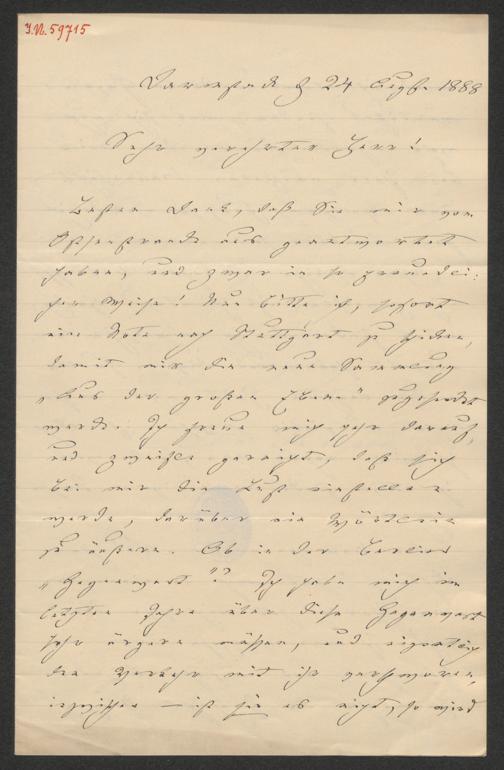 J.N. 59715
Darmstadt d 24 Augst 1888
Sehr verehrter Herr!
Besten Dank, daß Sie mir vom
Ostseestrande aus geantwortet
haben, und zwar in so freundli-
cher Weise! Nun bitte ich, sofort
eine Note nach Stuttgart zu schicken,
damit mir die neue Sammlung
„Aus der großen Ebene" zugesendet
werde. Ich freue mich sehr darauf,
und zweifle gar nicht, daß sich
bei mir die Lust einstellen
werde, darüber ein Wörtlein
zu äußern. Ob in der Berliner
„Gegenwart"? Ich habe mich im
letzten Jahre über diese Gegenwart
sehr ärgern müssen, und eigentlich
den Verkehr mit ihr verschworen,
inzwischen — ist sie es nicht, so wird